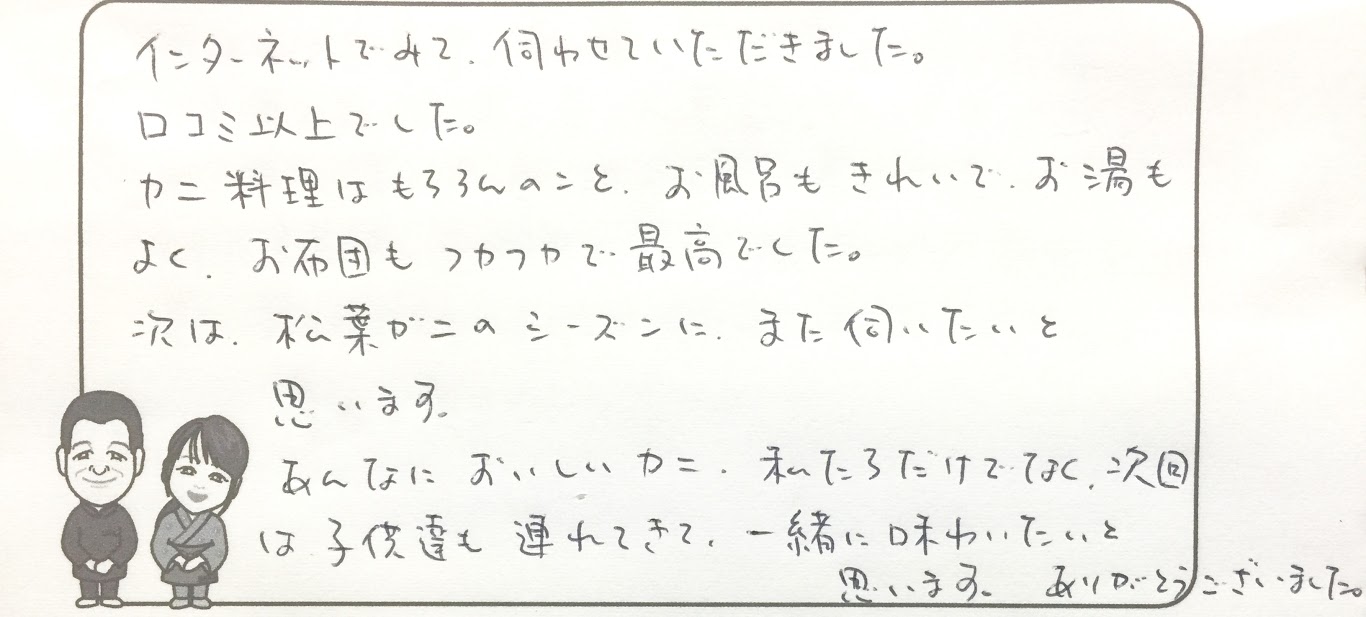 インターネットでみて、伺わせていただきました。
口コミ以上でした。
カニ料理はもちろんのこと、お風呂もきれいで、お湯も
よく、お布団もフカフカで最高でした。
次は、松葉ガニのシーズンに、また伺いたいと
思います。
あんなにおいしいカニ、私たちだけでなく、次回
は子供達も連れてきて、一緒に味わいたいと
思います。ありがとうございました。